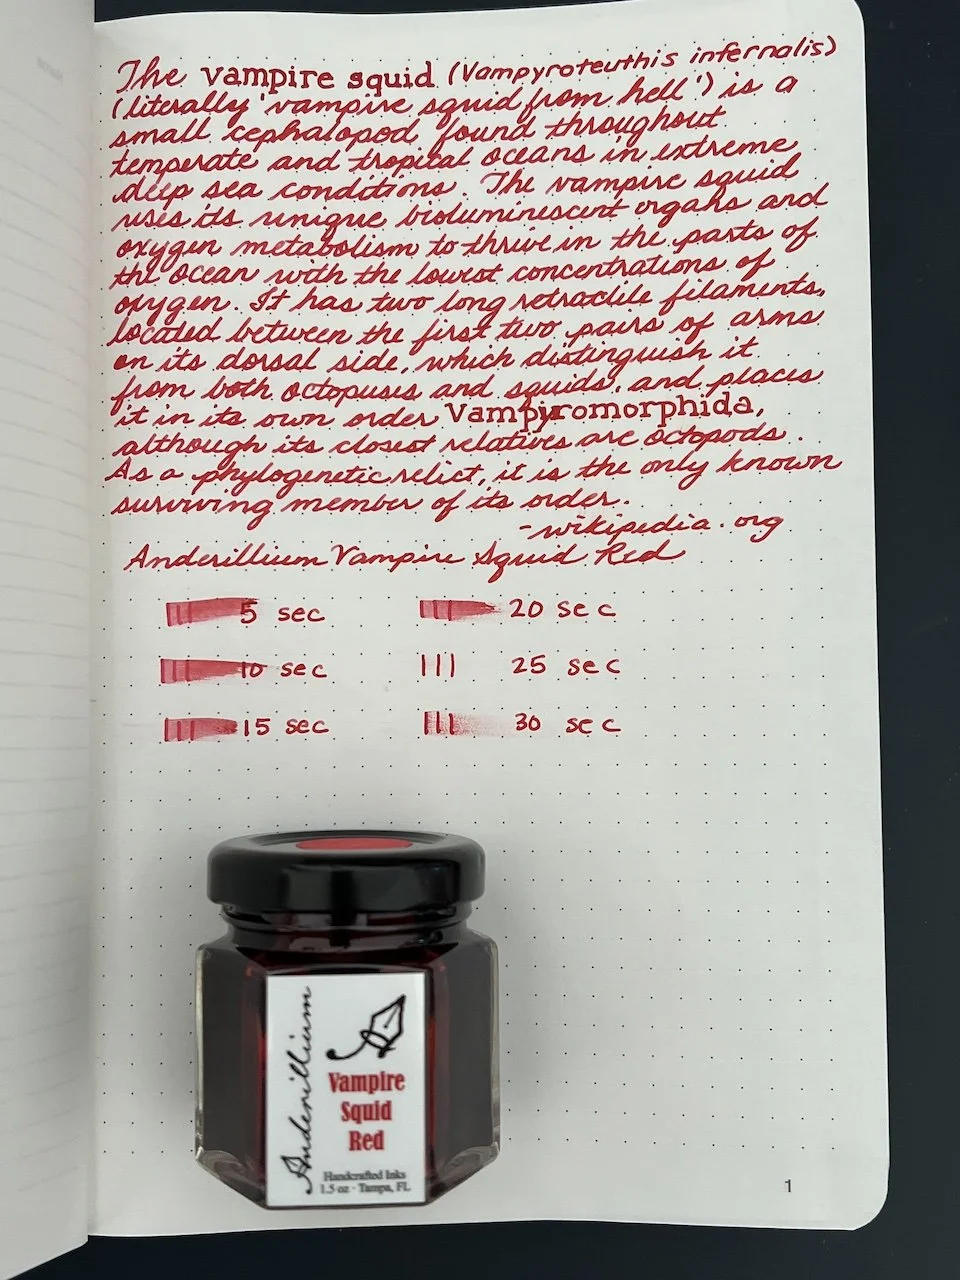 The vampire squid (Vampyroteuthis infernalis)
(literally 'vampire squid from hell') is a
small cephalopod found throughout
temperate and tropical oceans in extreme
deep sea conditions. The vampire squid
uses its unique bioluminescent organs and
oxygen metabolism to thrive in the parts of
the ocean with the lowest concentrations of
oxygen. It has two long retractile filaments,
located between the first two pairs of arms
on its dorsal side, which distinguish it
from both octopuses and squids, and places
it in its own order Vampyromorphida,
although its closest relatives are octopods.
As a phylogenetic relict, it is the only known
surviving member of its order.
-wikipedia.org
Anderillium Vampire Squid Red
5 sec
20 sec
10 sec
25 sec
15 sec
30 sec
Anderillium
Vampire
Squid
Red
Handcrafted Inks
1.5 oz · Tampa, FL
1